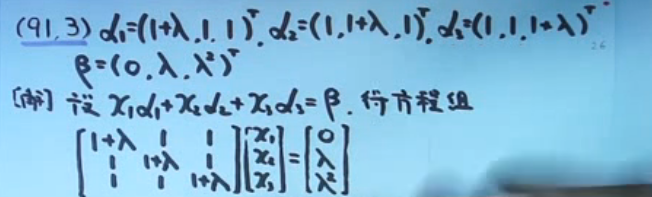 (91,3) α₁=(1+λ,1,1)ᵀ, α₂=(1,1+λ,1)ᵀ, α₃=(1,1,1+λ)ᵀ
β=(0,λ,λ²)ᵀ
26
[解] 设 x₁α₁+x₂α₂+x₃α₃=β, 得方程组
[1+λ 1 1] [x₁] [0]
[1 1+λ 1] [x₂] = [λ]
[1 1 1+λ] [x₃] [λ²]